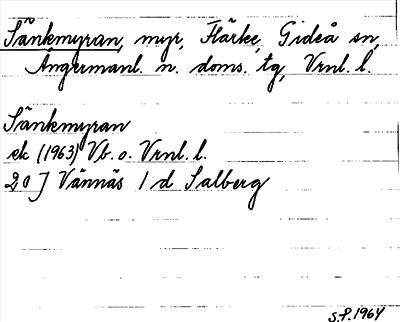 Sänkmyran, myr, Flärke, Gideå sn,
Ångermanl. n. doms. tg, Vrnl. l.
Sänkmyran
ek (1963) Vb. o. Vrnl. l.
20 J Vännäs 1 d Salberg
S.P. 1964